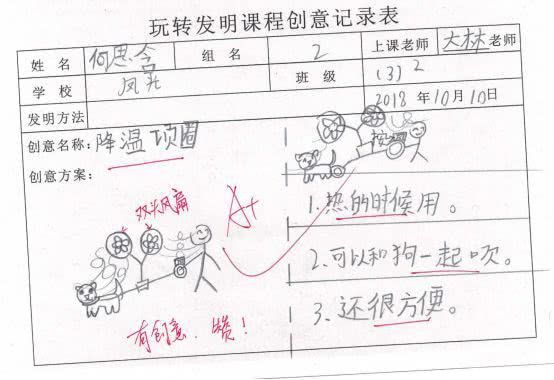 玩转发明课程创意记录表
姓名 何思含 组名 2 上课老师 大林老师
学校 凤光 班级 (3)2
发明方法 2018年10月10日
创意名称：降温项圈
创意方案：
双头风扇
A+
有创意、赞！
按钮
1.热的时候用。
2.可以和狗一起吹。
3.还很方便。